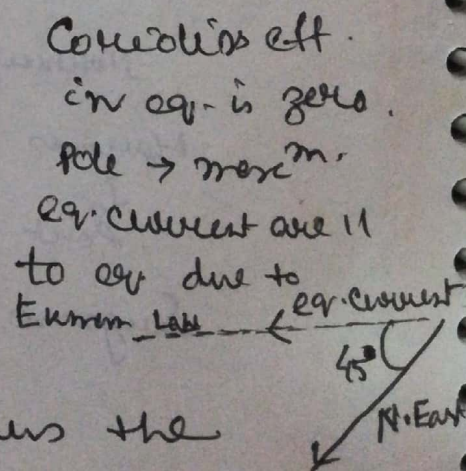 Coriolis eff.
in eq. is zero.
Pole → maxᵐ.
eq. current are ||
to eq due to
Ekman Law eq. current
45°
N. East
the